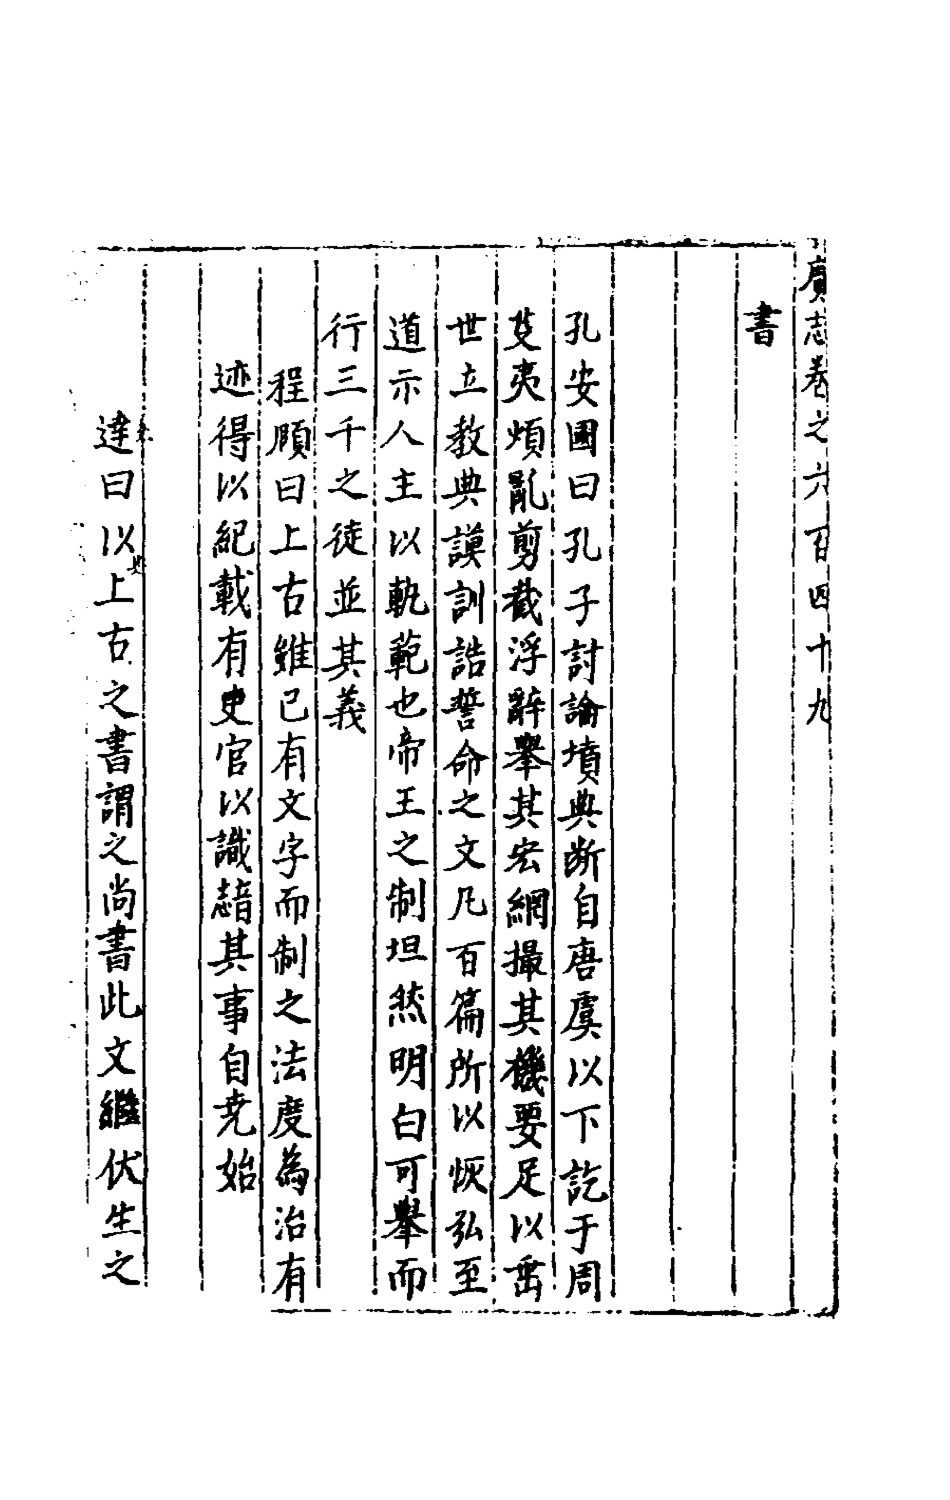 廣志卷之六百四十九
書
孔安國曰孔子討論墳典断自唐虞以下訖于周
芟夷煩亂剪截浮辭舉其宏綱撮其機要足以垂
世立教典謨訓誥誓命之文凡百篇所以恢弘至
道示人主以軌範也帝王之制坦然明白可舉而
行三千之徒並其義
程頤曰上古雖已有文字而制之法度為治有
迹得以紀載有史官以識誌其事自尭始
達曰以上古之書謂之尚書此文繼伏生之